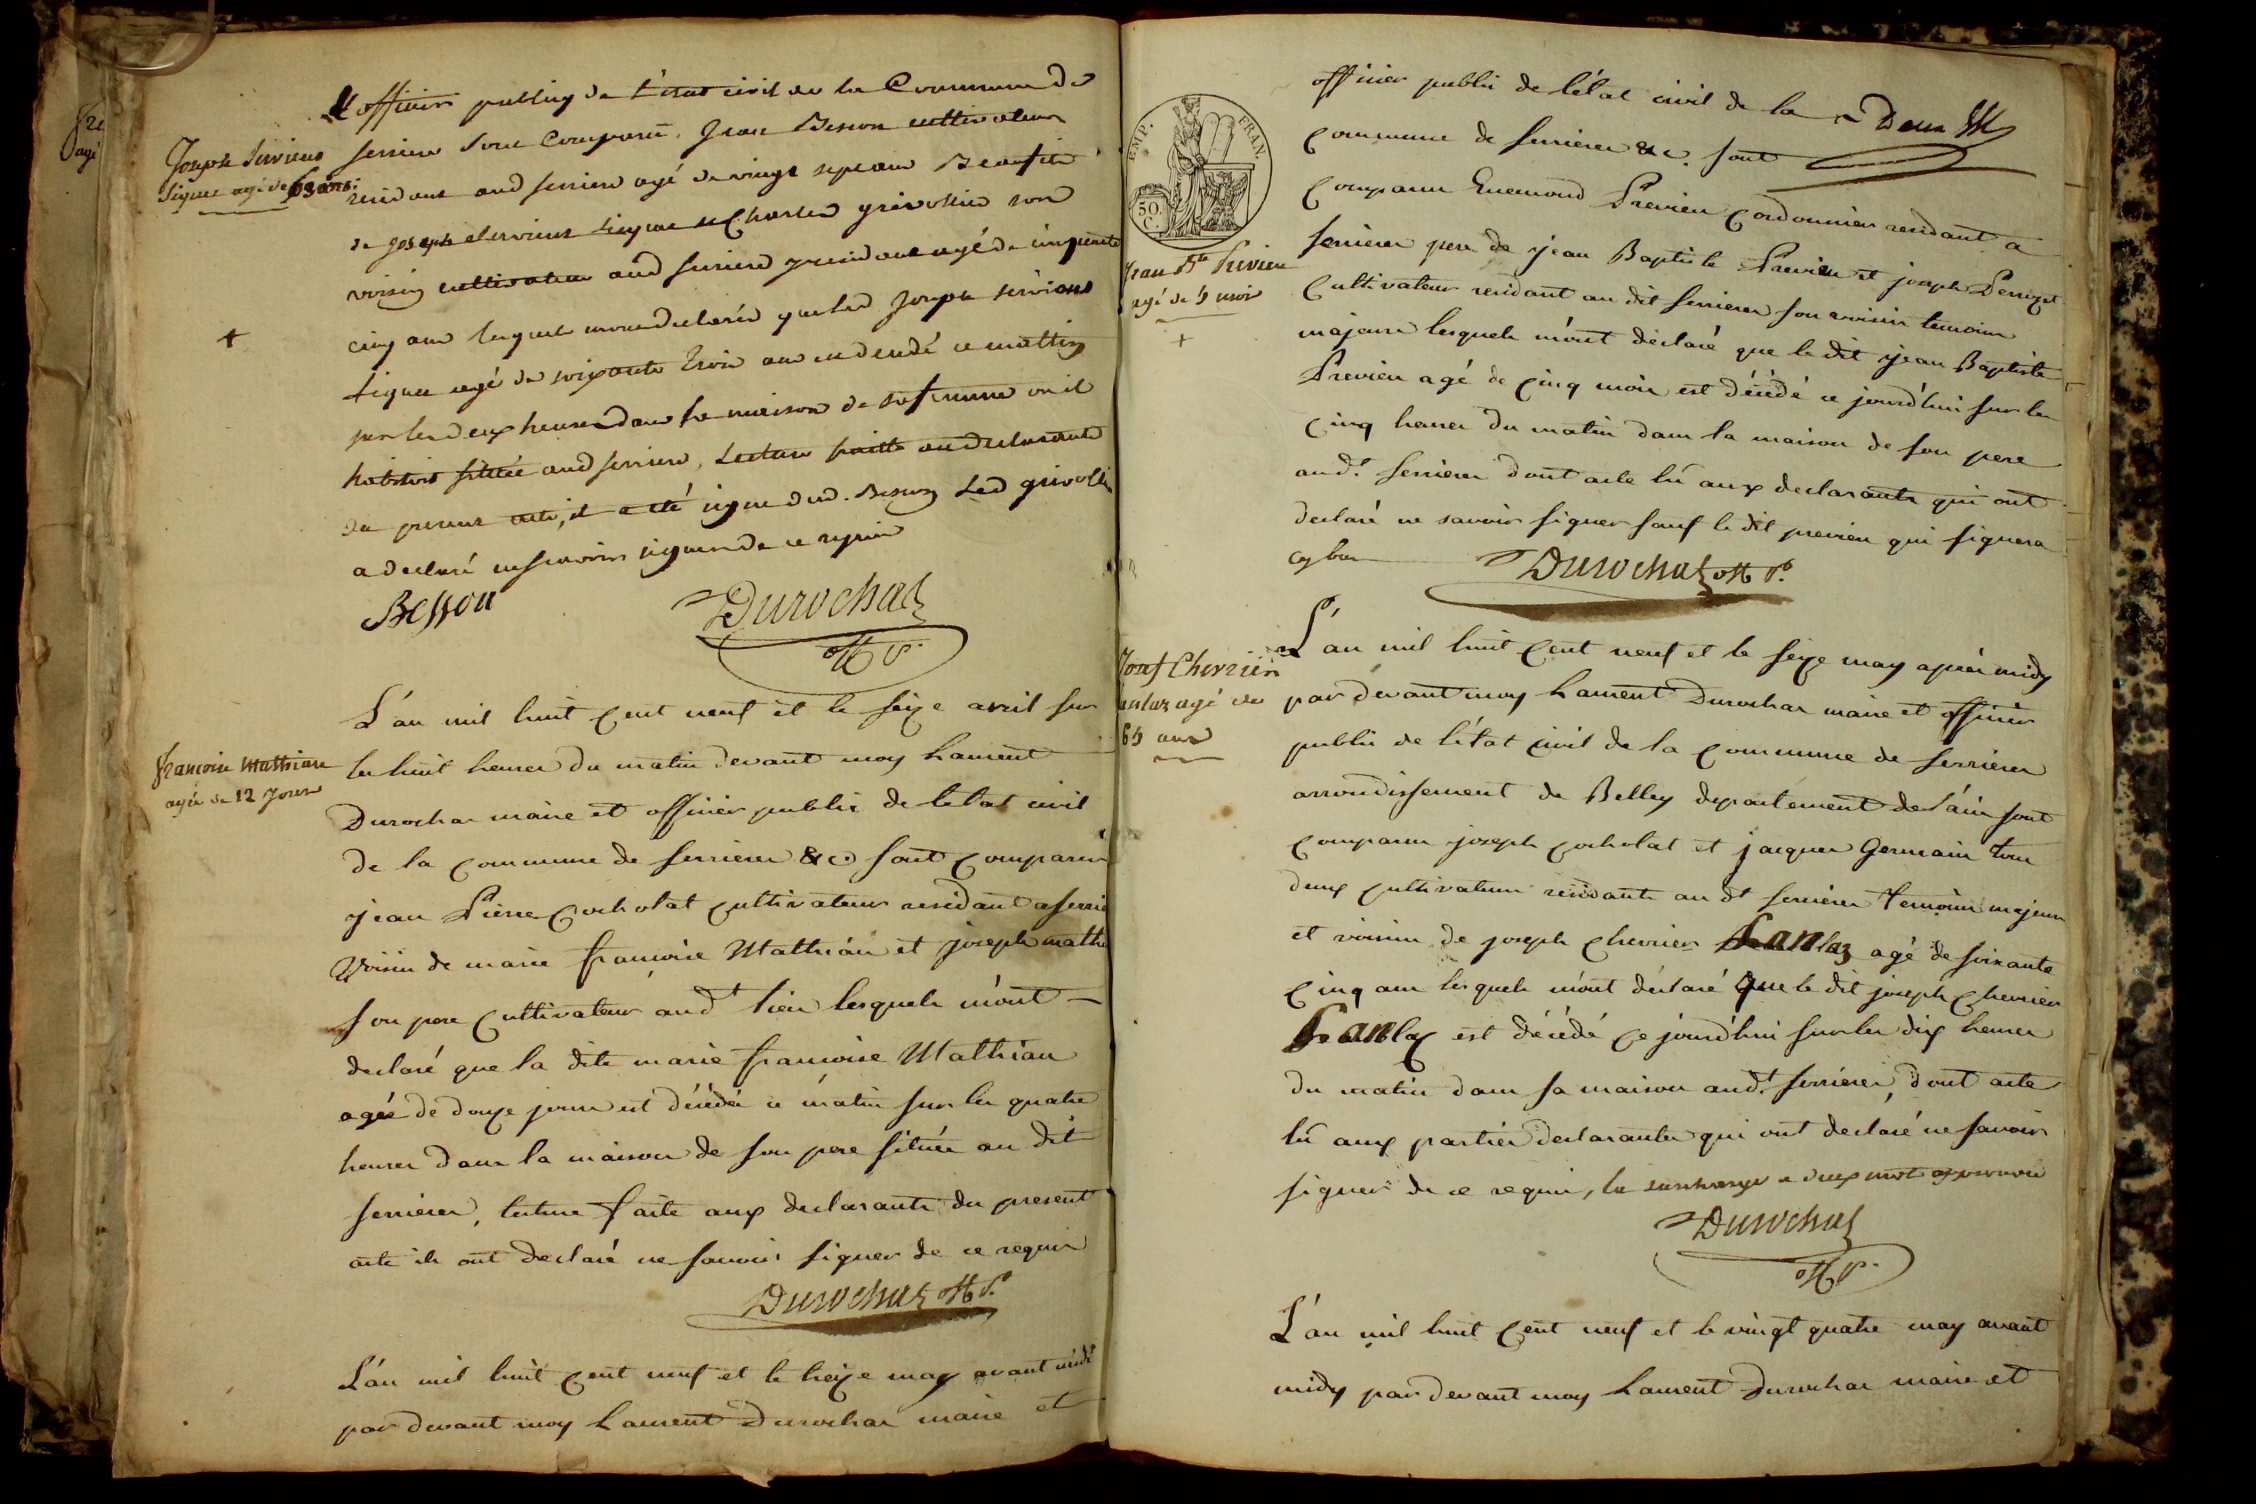 officier public de l'état civil de la Commune de
Serriere sont comparu Jean Besson cultivateur
residant aud Serriere agé de vingt sept ans Beaufils
de Joseph Servieux Liques et Charles grivollie son
voisin cultivateur aud Serriere y residant agé de cinquante
cinq ans lesquels mont declarés que led Joseph Servieux
Liques agé de soixante trois ans est decedé ce mattin
sur les deux heures dans la maison de sa femme ou il
habitoit située aud Serriere, Lecture faitte aux declarants
du present acte, il a été signé dud. Besson Led grivollie
a declaré ne scavoir signer de ce requis
Besson
Durochat
off p.
Joseph Servieux
Liques agé de 63 ans
+
L'an mil huit cent neuf et le seize avril sur
les huit heures du matin devant moy Laurent
Durochat maire et officier public de l'etat civil
de la commune de Serrieres &c. sont comparus
jean Pierre Cocholat cultivateur residant a Serrie
voisin de marie francoise Mathian et joseph mathi
son pere cultivateur aud.t lieu lesquels m'ont
declaré que la dite marie francoise Mathian
agée de douze jours est décédée ce matin sur les quatre
heures dans la maison de son pere située au dit
Serrieres, lecture faite aux declarants du present
acte ils ont declaré ne savoir signer de ce requis
Durochat off p.
francoise Mathian
agée de 12 jours
L'an mil huit cent neuf et le treize may avant midi
par devant moy Laurent Durochat maire et
officier public de l'état civil de la
Deux
commune de Serrieres &c. sont
comparu Enemond Previeu cordonnier residant a
Serrieres pere de jean Baptiste Previeu et joseph Perrozet
cultivateur residant au dit Serrieres son voisin temoins
majeurs lesquels m'ont déclaré que le dit jean Baptiste
Previeu agé de cinq mois est décédé ce jourd'hui sur les
cinq heures du matin dans la maison de son pere
aud.t Serrieres dont acte lû aux declarants qui ont
declaré ne savoir signer sauf le dit previeu qui signera
cy bas
Durochat off p.
EMP. FRAN.
50. C.
Jean B.te Previeu
agé de 5 mois
+
L'an mil huit cent neuf et le seize may après midy
par devant moy Laurent Durochat maire et officier
public de l'état civil de la commune de Serrieres
arrondissement de Belley departement de l'ain sont
comparus joseph cocholat et jacques Germain tous
deux cultivateurs residants au d.t Serrieres temoins majeurs
et voisins de joseph chervier Lanlaz agé de soixante
cinq ans lesquels m'ont déclaré que le dit joseph chervier
Lanlaz est décédé ce jourd'hui sur les dix heures
du matin dans sa maison aud.t Serrieres, dont acte
lû aux parties declarantes qui ont declaré ne savoir
signer de ce requis, la surcharge a deux mots approuvée
Durochat
off p.
Josef Chervier
Lanlaz agé de
65 ans
L'an mil huit cent neuf et le vingt quatre may avant
midy par devant moy Laurent Durochat maire et